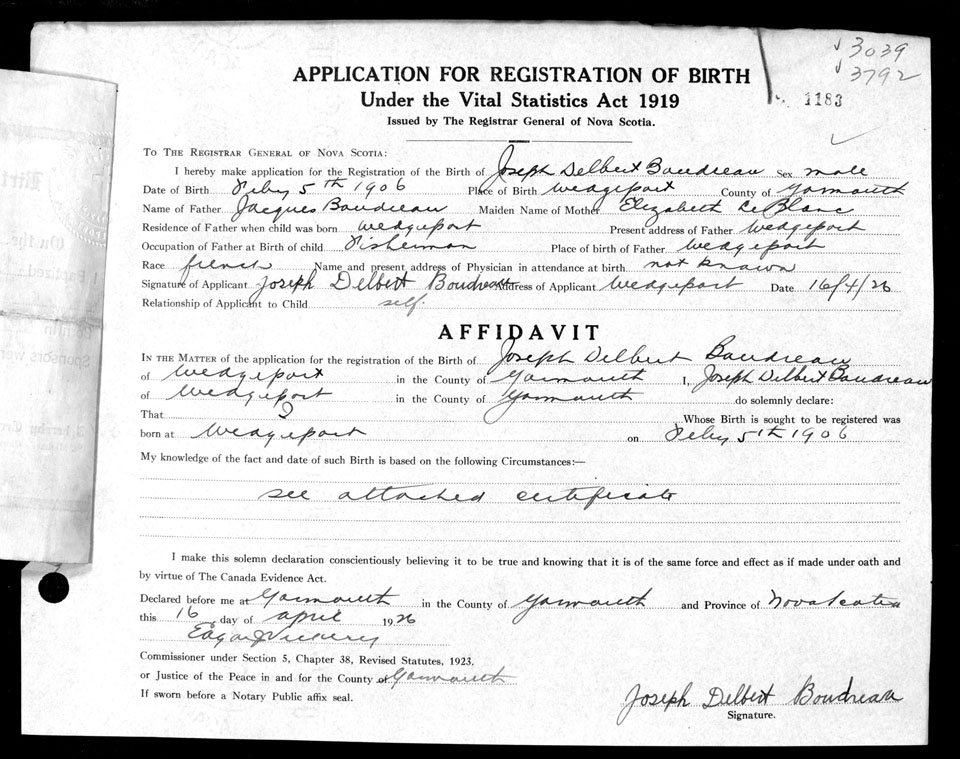 3039
3792
1183
APPLICATION FOR REGISTRATION OF BIRTH
Under the Vital Statistics Act 1919
Issued by The Registrar General of Nova Scotia.
TO THE REGISTRAR GENERAL OF NOVA SCOTIA:
I hereby make application for the Registration of the Birth of Joseph Delbert Boudreau Sex male
Date of Birth Feby 5th 1906 Place of Birth Wedgeport County of Yarmouth
Name of Father Jacques Boudreau Maiden Name of Mother Elizabeth LeBlanc
Residence of Father when child was born Wedgeport Present address of Father Wedgeport
Occupation of Father at Birth of child Fisherman Place of birth of Father Wedgeport
Race french Name and present address of Physician in attendance at birth not known
Signature of Applicant Joseph Delbert Boudreau Address of Applicant Wedgeport Date 16/4/26
Relationship of Applicant to Child self.
AFFIDAVIT
IN THE MATTER of the application for the registration of the Birth of Joseph Delbert Boudreau
of Wedgeport in the County of Yarmouth I, Joseph Delbert Boudreau
of Wedgeport in the County of Yarmouth do solemnly declare:
That I Whose Birth is sought to be registered was
born at Wedgeport on Feby 5th 1906
My knowledge of the fact and date of such Birth is based on the following Circumstances:—
see attached certificate
I make this solemn declaration conscientiously believing it to be true and knowing that it is of the same force and effect as if made under oath and
by virtue of The Canada Evidence Act.
Declared before me at Yarmouth in the County of Yarmouth and Province of Nova Scotia
this 16 day of april 1926
Edgar J Vickery
Commissioner under Section 5, Chapter 38, Revised Statutes, 1923,
or Justice of the Peace in and for the County of Yarmouth
If sworn before a Notary Public affix seal.
Joseph Delbert Boudreau
Signature.